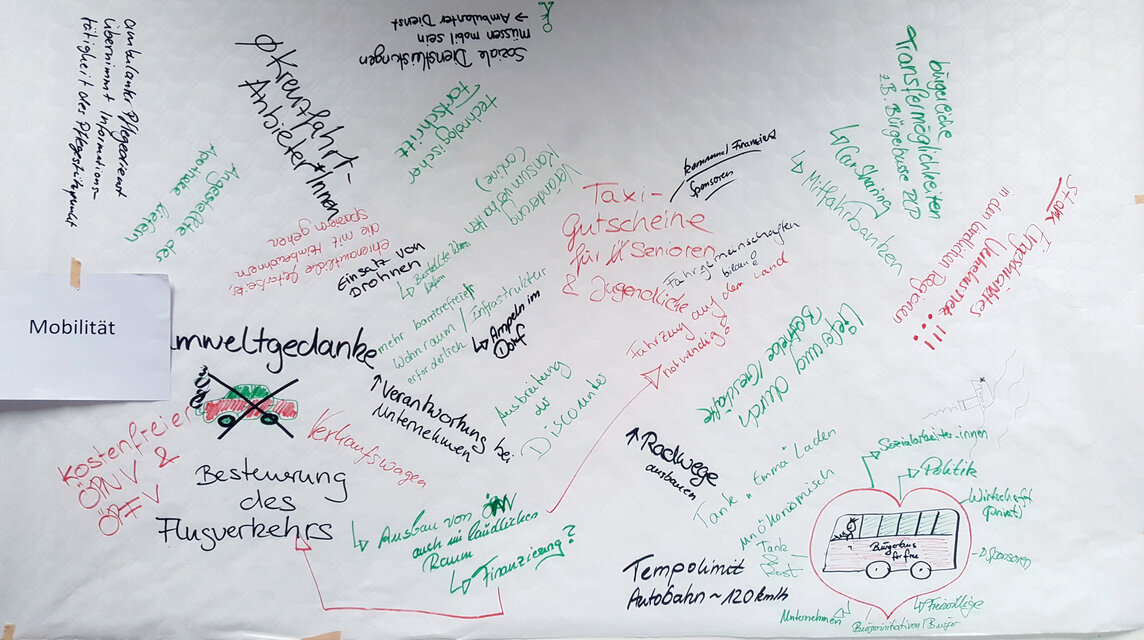 ambulanter Pflegedienst
übernimmt Informations-
tätigkeit der Pflegestützpunkt
Ø Kreuzfahrt-
Anbieter*Innen
Soziale Dienstleistungen
müssen mobil sein
→ Ambulanter Dienst
technologischer
Fortschritt
Angestellte der
Apotheke liefern
ehrenamtliche
die mit Heimbewohnern
spazieren gehen
Veränderung
Konsumverhalten
(online)
Einsatz von
Drohnen
↳ Bestellte
liefern
Taxi-
Gutscheine
für Senioren
& Jugendliche
kommunal Finanziert
Sponsoren
bürgerliche
Transfermöglichkeiten
z.B. Bürgerbusse
↳ CarSharing
↳ Mitfahrbanken
Stark Eingeschränktes
in den ländlichen Regionen
!!!
Fahrgemeinschaften
bilden
Fahrzeug auf dem Land
notwendig!
Mobilität
Umweltgedanke
mehr barrierefreier
Wohnraum / Infrastruktur
erforderlich
↳ Ampeln im
Dorf
↑ Verantwortung bei
Unternehmen
Ausbreitung
der
Discounter
Lieferung durch
Betriebe / Geschäfte
Kostenfreier
ÖPNV &
ÖPFV
Verkaufswagen
Besteurung
des
Flugverkehrs
↳ Ausbau von ÖPNV
auch im ländlichen
Raum
↳ Finanzierung?
↑ Radwege
ausbauen
Tante Emma Läden
unökonomisch
Tank
Rast
Tempolimit
Autobahn ~ 120 km/h
Sozialarbeiter-innen
Politik
Wirtschaft
(privat)
Sponsoren
Freiwillige
Bürgerinitiativen / Bürger
Unternehmen
Bürgerbus